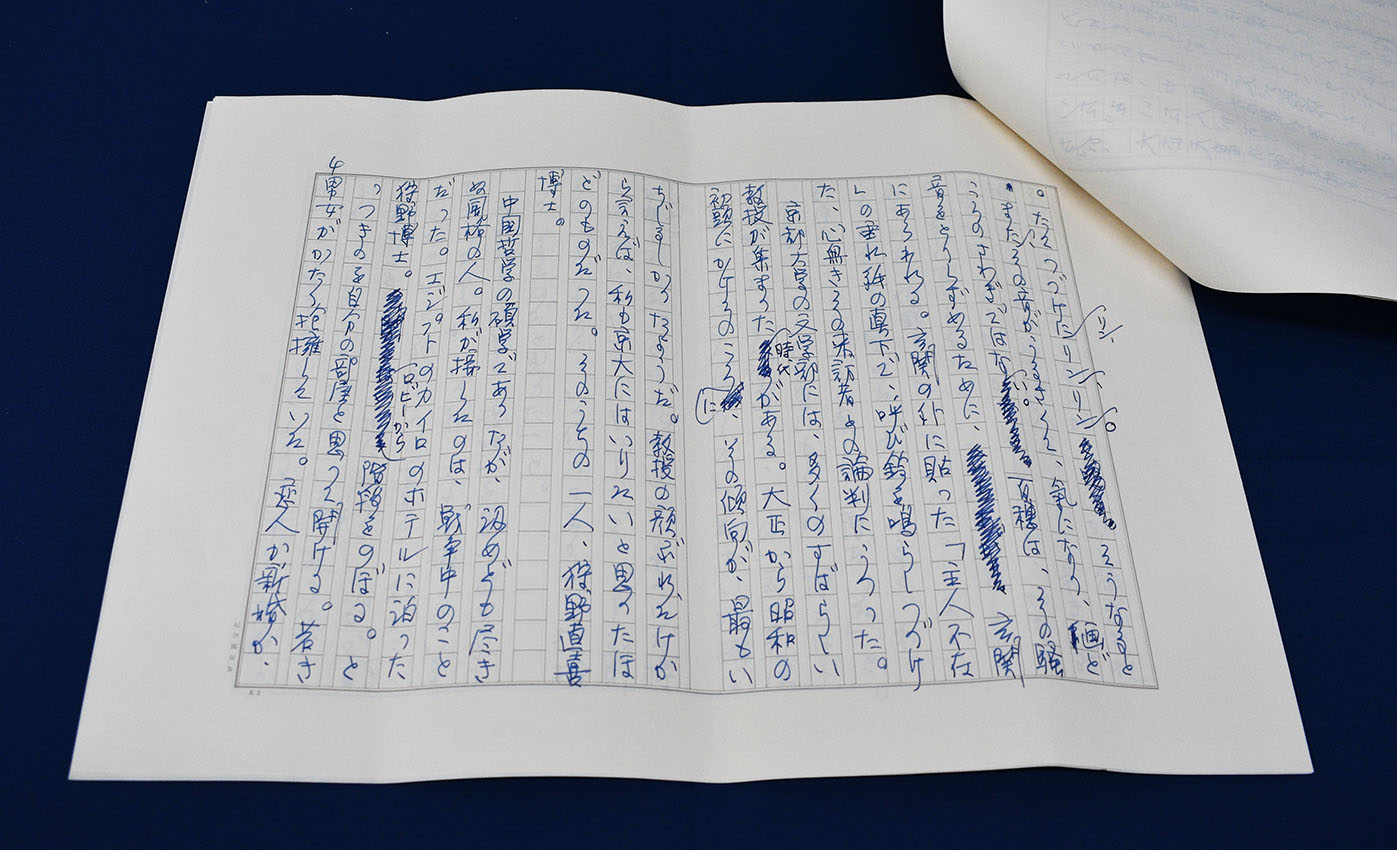 。たてつづけにリンリン、リン、リン。そうなると
またその音がうるさくて、氣になり、画ど
ころのさわぎではない。百穂は、その騒
音をとりしずめるために、玄関
にあらわれる。玄関の外に貼った「主人不在
」の垂れ紙の真下で、呼び鈴を鳴らしつづけ
た、心無きその来訪者との論判にうつった。
京都大学の文学部には、多くのすばらしい
教授が集まった時代がある。大正から昭和の
初頭にかけてのころに、その傾向が、最もい
ちじるしかったようだ。教授の顔ぶれだけか
ら言えば、私も京大にはいりたいと思ったほ
どのものだった。そのうちの一人、狩野直喜
博士。
中国哲学の碩学であったが、汲めども尽き
ぬ風格の人。私が接したのは、戦争中のこと
だった。エジプトのカイロのホテルに泊った
狩野博士。ロビーから階段をのぼる。と
っつきのを自分の部屋と思って開ける。若き
男女がかたく抱擁していた。恋人か新婚か、
4